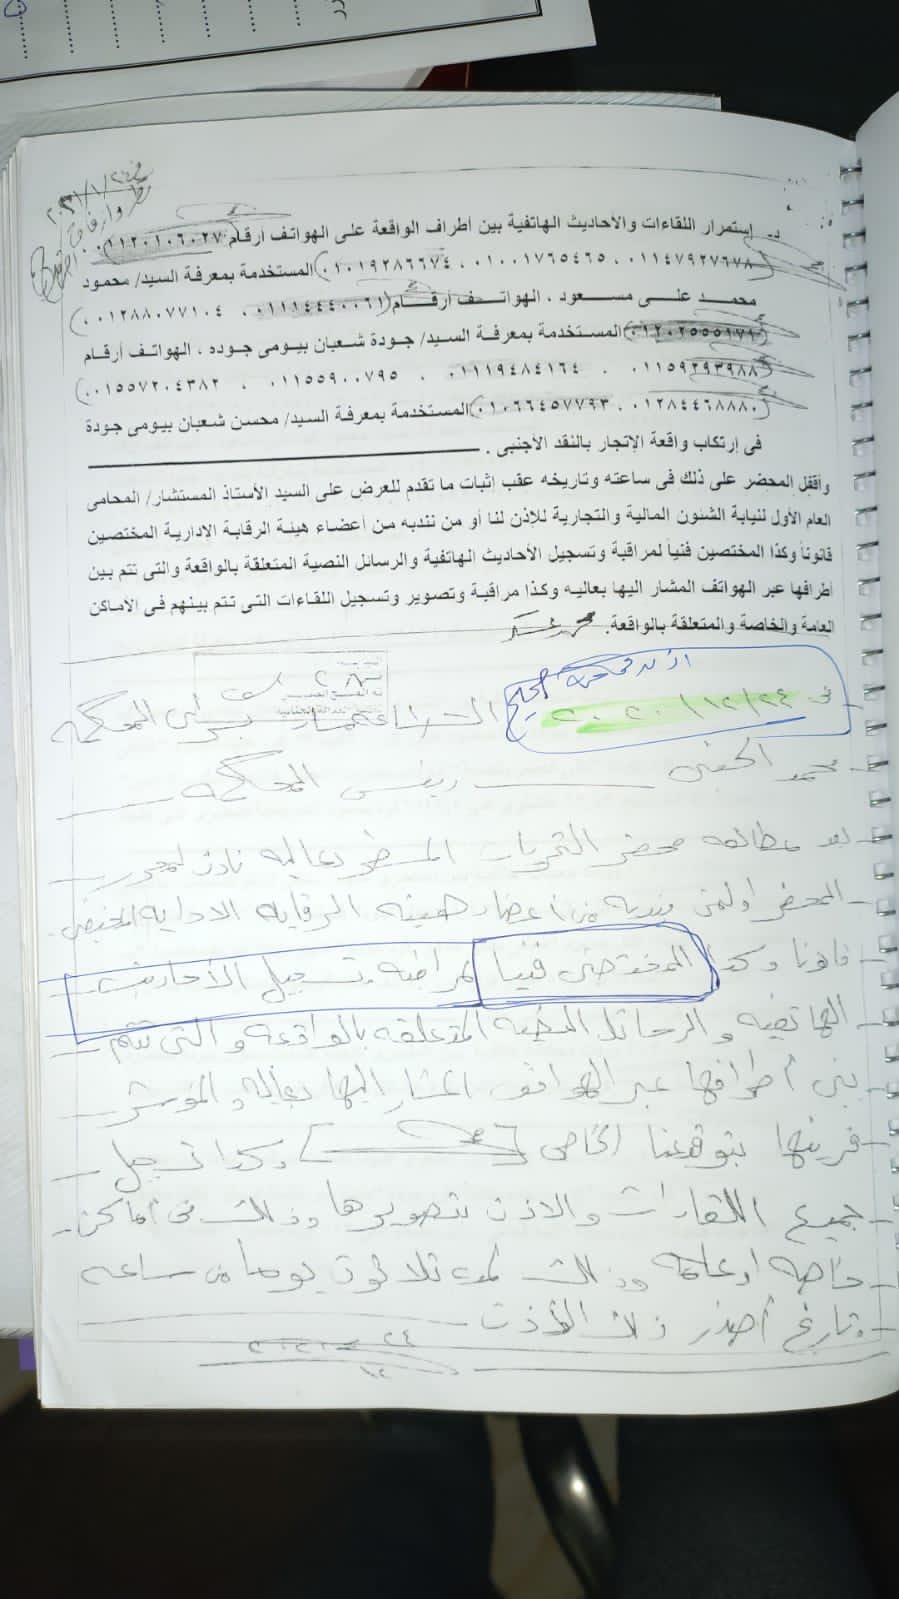 د- إستمرار اللقاءات والأحاديث الهاتفية بين أطراف الواقعة على الهواتف أرقام (٠١١٢٠١٠٦٠٢٧
٠١١٤٧٩٢٧٦٧٨ ، ٠١٠٠١٧٦٥٤٦٥ ، ٠١٠١٩٢٨٦٦٧٤) المستخدمة بمعرفة السيد/ محمود
محمد على مسعود ، الهواتف أرقام (٠١١١٤٤٤٠٠٦١ ، ٠١٢٨٨٠٧٧١٠٤
٠١٢٠٢٥٥٥١٧١) المستخدمة بمعرفة السيد/ جودة شعبان بيومى جوده ، الهواتف أرقام
(٠١١٥٩٢٩٣٩٨٨ ، ٠١١١٩٤٨٤١٦٤ ، ٠١١٥٥٩٠٠٧٩٥ ، ٠١٥٥٧٢٠٤٣٨٢
٠١٢٨٤٤٦٨٨٨٠ ، ٠١٠٦٦٤٥٧٧٩٣) المستخدمة بمعرفة السيد/ محسن شعبان بيومى جودة
فى إرتكاب واقعة الإتجار بالنقد الأجنبى .
وأقفل المحضر على ذلك فى ساعته وتاريخه عقب إثبات ما تقدم للعرض على السيد الأستاذ المستشار/ المحامى
العام الأول لنيابة الشئون المالية والتجارية للإذن لنا أو من نندبه من أعضاء هيئة الرقابة الادارية المختصين
قانوناً وكذا المختصين فنياً لمراقبة وتسجيل الأحاديث الهاتفية والرسائل النصية المتعلقة بالواقعة والتى تتم بين
أطرافها عبر الهواتف المشار اليها بعاليه وكذا مراقبة وتصوير وتسجيل اللقاءات التى تتم بينهم فى الأماكن
العامة والخاصة والمتعلقة بالواقعة.
فى ٢٠٢٠/١٢/٢٤ المحكمة
محمد رئيس المحكمة
بعد مطالعة محضر التحريات المسطر بعاليه نأذن لمحرر
المحضر أو لمن يندبه من أعضاء هيئة الرقابة الادارية المختصين
قانونا وكذا المختصين فنيا لمراقبة وتسجيل الأحاديث
الهاتفية والرسائل النصية المتعلقة بالواقعة والتى تتم
بين أطرافها عبر الهواتف المشار اليها بعاليه والمؤشر
قرينها بتوقيعنا الخاص وكذا تسجيل
جميع اللقاءات والاذن بتصويرها وذلك فى أماكن
خاصة أو عامة وذلك لمدة ثلاثون يوما من ساعة
وتاريخ أصدر ذلك الأذن